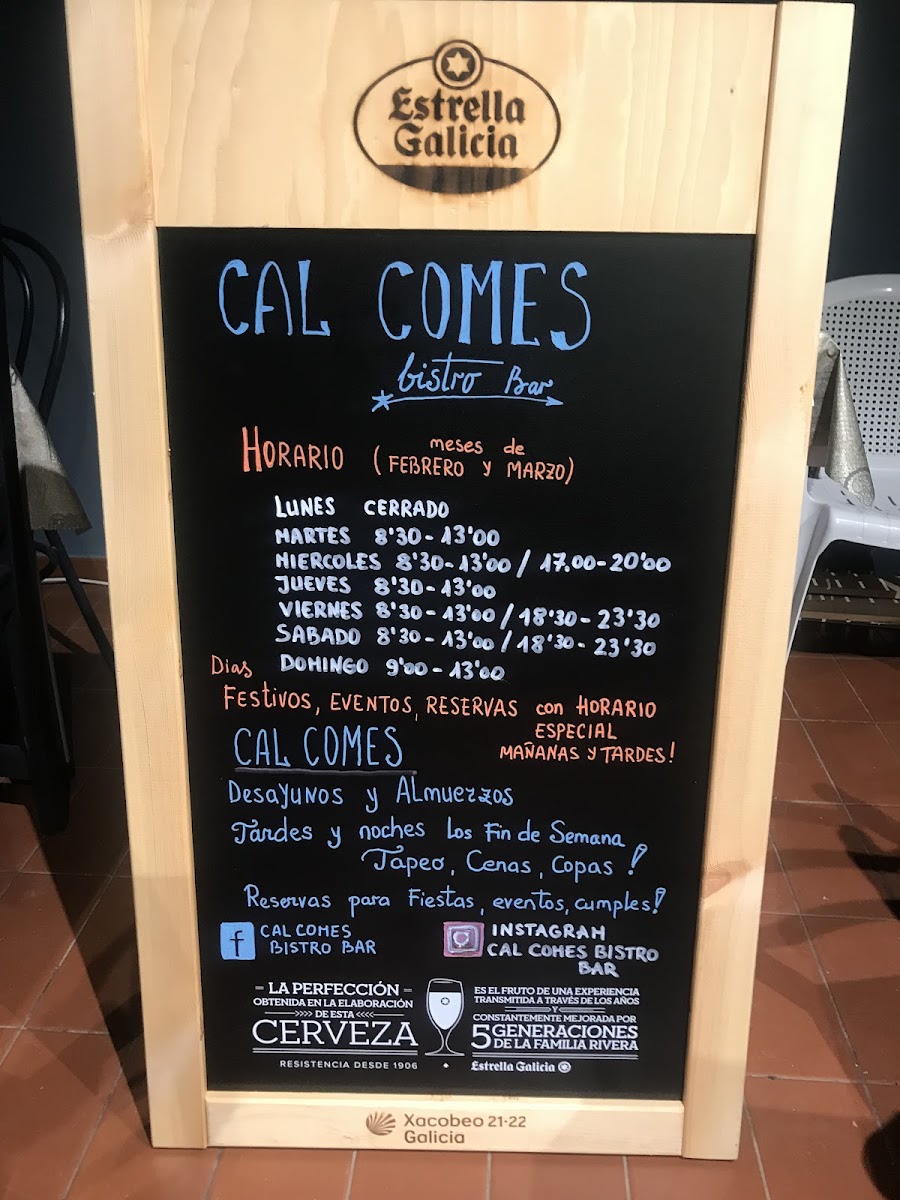 Estrella
Galicia
CAL COMES
bistro Bar
HORARIO (meses de
FEBRERO Y MARZO)
LUNES CERRADO
MARTES 8'30-13'00
MIERCOLES 8'30-13'00 / 17.00-20'00
JUEVES 8'30-13'00
VIERNES 8'30-13'00 / 18'30-23'30
SABADO 8'30-13'00 / 18'30-23'30
DOMINGO 9'00-13'00
Dias
FESTIVOS, EVENTOS, RESERVAS con HORARIO
ESPECIAL
MAÑANAS Y TARDES!
CAL COMES
Desayunos y Almuerzos
Tardes y noches Los Fin de Semana
Tapeo, Cenas, Copas!
Reservas para Fiestas, eventos, cumples!
f CAL COMES
BISTRO BAR
INSTAGRAM
CAL COMES BISTRO
BAR
LA PERFECCIÓN
OBTENIDA EN LA ELABORACIÓN
DE ESTA
CERVEZA
RESISTENCIA DESDE 1906
ES EL FRUTO DE UNA EXPERIENCIA
TRANSMITIDA A TRAVÉS DE LOS AÑOS
Y
CONSTANTEMENTE MEJORADA POR
5 GENERACIONES
DE LA FAMILIA RIVERA
Estrella Galicia
Xacobeo 21·22
Galicia